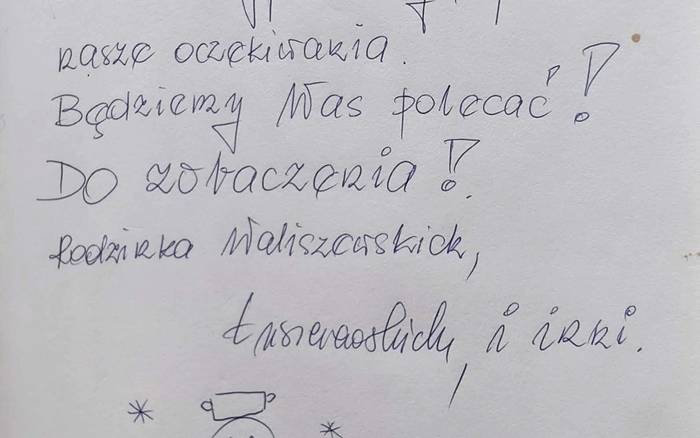 nasze oczekiwania.
Będziemy Was polecać!
Do zobaczenia!
Rodzinka Waliszewskich,
i inni.